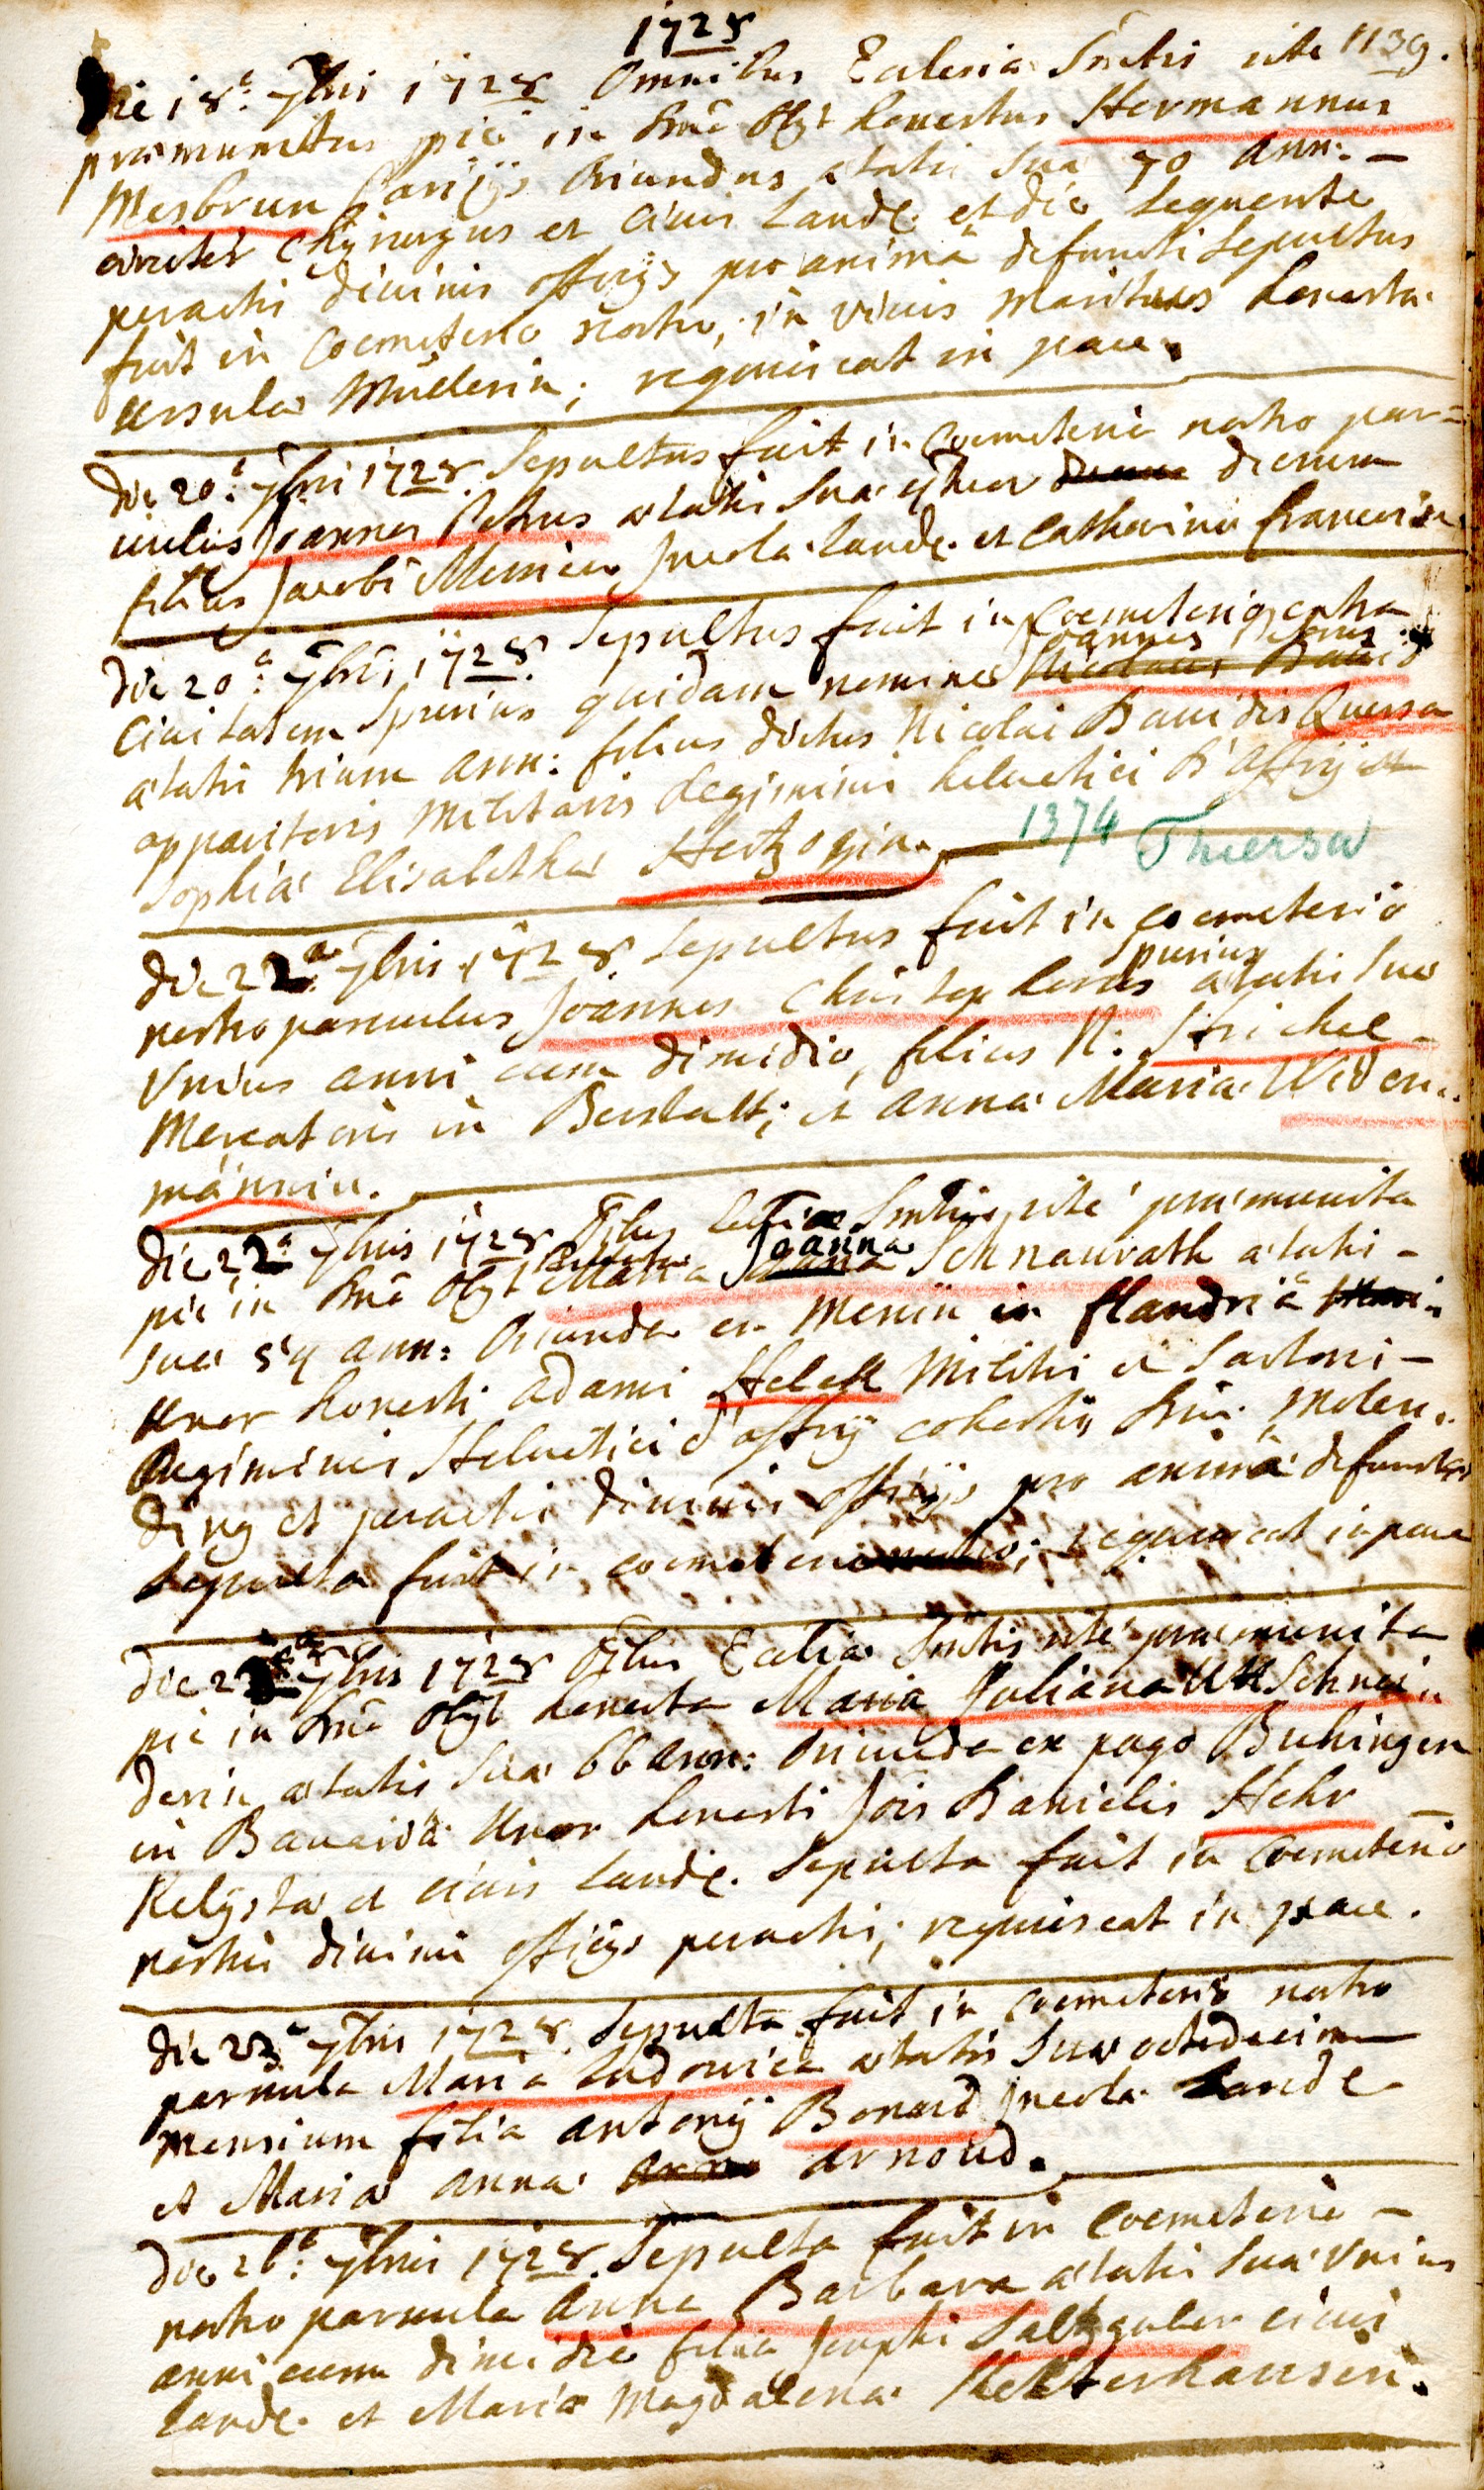 1728
Die 18.a 7bris 1728 omnibus Ecclesia Smtis rite 1139.
præmunitus piè in Dno obyt honestus Hermannus
Mesbrun Parisijs oriundus ætatis suæ 70 ann: –
circiter Chyrurgus et civis Landæ. et die sequente
peractis divinis officijs pro animâ defuncti sepultus
fuit in Coemeterio nostro, in vivis maritus honestæ
Ursulæ Müllerin; requiescat in pace.
Die 20.a 7bris 1728 Sepultus fuit in Coemeterio nostro par=
vulus Joannes Petrus ætatis suæ dierum
filius Jacobi Mersier Incolæ Landæ. et Catharinæ Francoise
Die 20.a 7bris 1728. Sepultus fuit in Coemeterio extra
Joannes Petrus
Civitatem Spurius quidam nomine
ætatis trium ann: filius dictus Nicolai Davidis Quersa
apparitoris militaris Regiminis helvetici D'affry et
Sophiæ Elisabethæ Hertzogin. 1374 Thiersa
Die 22.a 7bris 1728 Sepultus fuit in coemeterio
spurius
nostro parvulus Joannes Christophorus ætatis suæ
Unius anni cum dimidio, filius N: Strickel
Mercatoris in Berstatt; et Annæ Mariæ Widen=
männin.
Die 22.a 7bris 1728 Oibus Eccliæ Smtis rite præmunita
Joanna
piè in Dno obyt Maria Schnaurath ætatis –
suæ 54 ann: oriunda ex Menin in Flandriâ
Uxor honesti Adami Heleck Militis et Sartoris –
Regiminis Helvetici d'affry cohortis Dni Molen=
ding et peractis divinis officijs pro animâ defunctæ
sepulta fuit in coemeterio; requiescat in pace
Die 7bris 1728 Oibus Eccliæ Smtis rite præmunita
piè in Dno obyt honesta Maria Juliana Schnei=
derin ætatis suæ 66 ann: oriunda ex pago Buhingen
in Bavariâ Uxor honesti Jois Danielis Hehr –
Relystæ et civis Landæ. Sepulta fuit in Coemeterio
nostro divinis officijs peractis; requiescat in pace.
Die 23.a 7bris 1728. Sepulta fuit in coemeterio nostro
parvula Maria Ludovica ætatis suæ octodecim
mensium filia Antonij Bonard Incolæ Landæ
et Mariæ Annæ Arnoud.
Die 26.a 7bris 1728. Sepulta fuit in Coemeterio –
nostro parvula Anna Barbara ætatis suæ Unius
anni cum dimidio filia Josephi Saltzgeber civis
Landæ. et Mariæ Magdalenæ Kelterhausen.